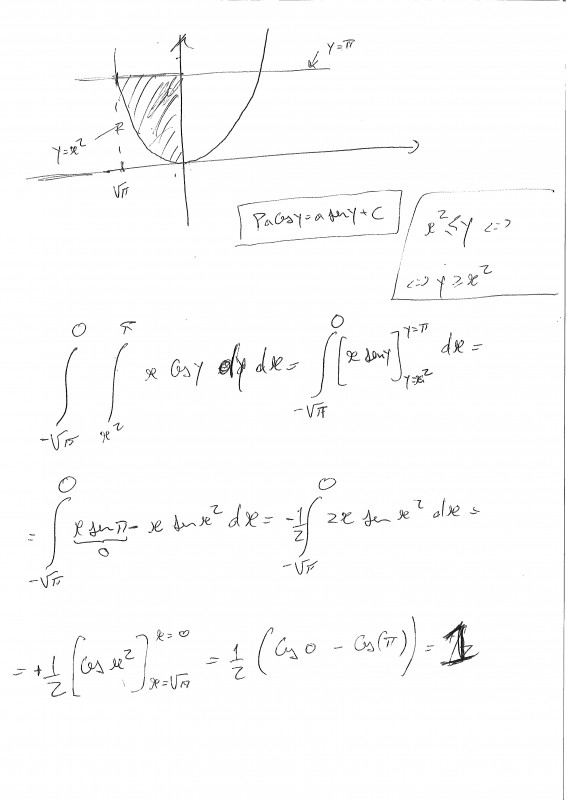 y=π
y=x²
R
√π
Pa cos y = a sen y + C
x² ≤ y <=>
<=> y ≥ x²
∫_{-√π}^{0} ∫_{x²}^{π} x cos y dy dx = ∫_{-√π}^{0} [x sen y]_{y=x²}^{y=π} dx =
= ∫_{-√π}^{0} x sen π - x sen x² dx = -1/2 ∫_{-√π}^{0} 2x sen x² dx =
0
= +1/2 [cos x²]_{x=√π}^{x=0} = 1/2 (cos 0 - cos(π)) = 1